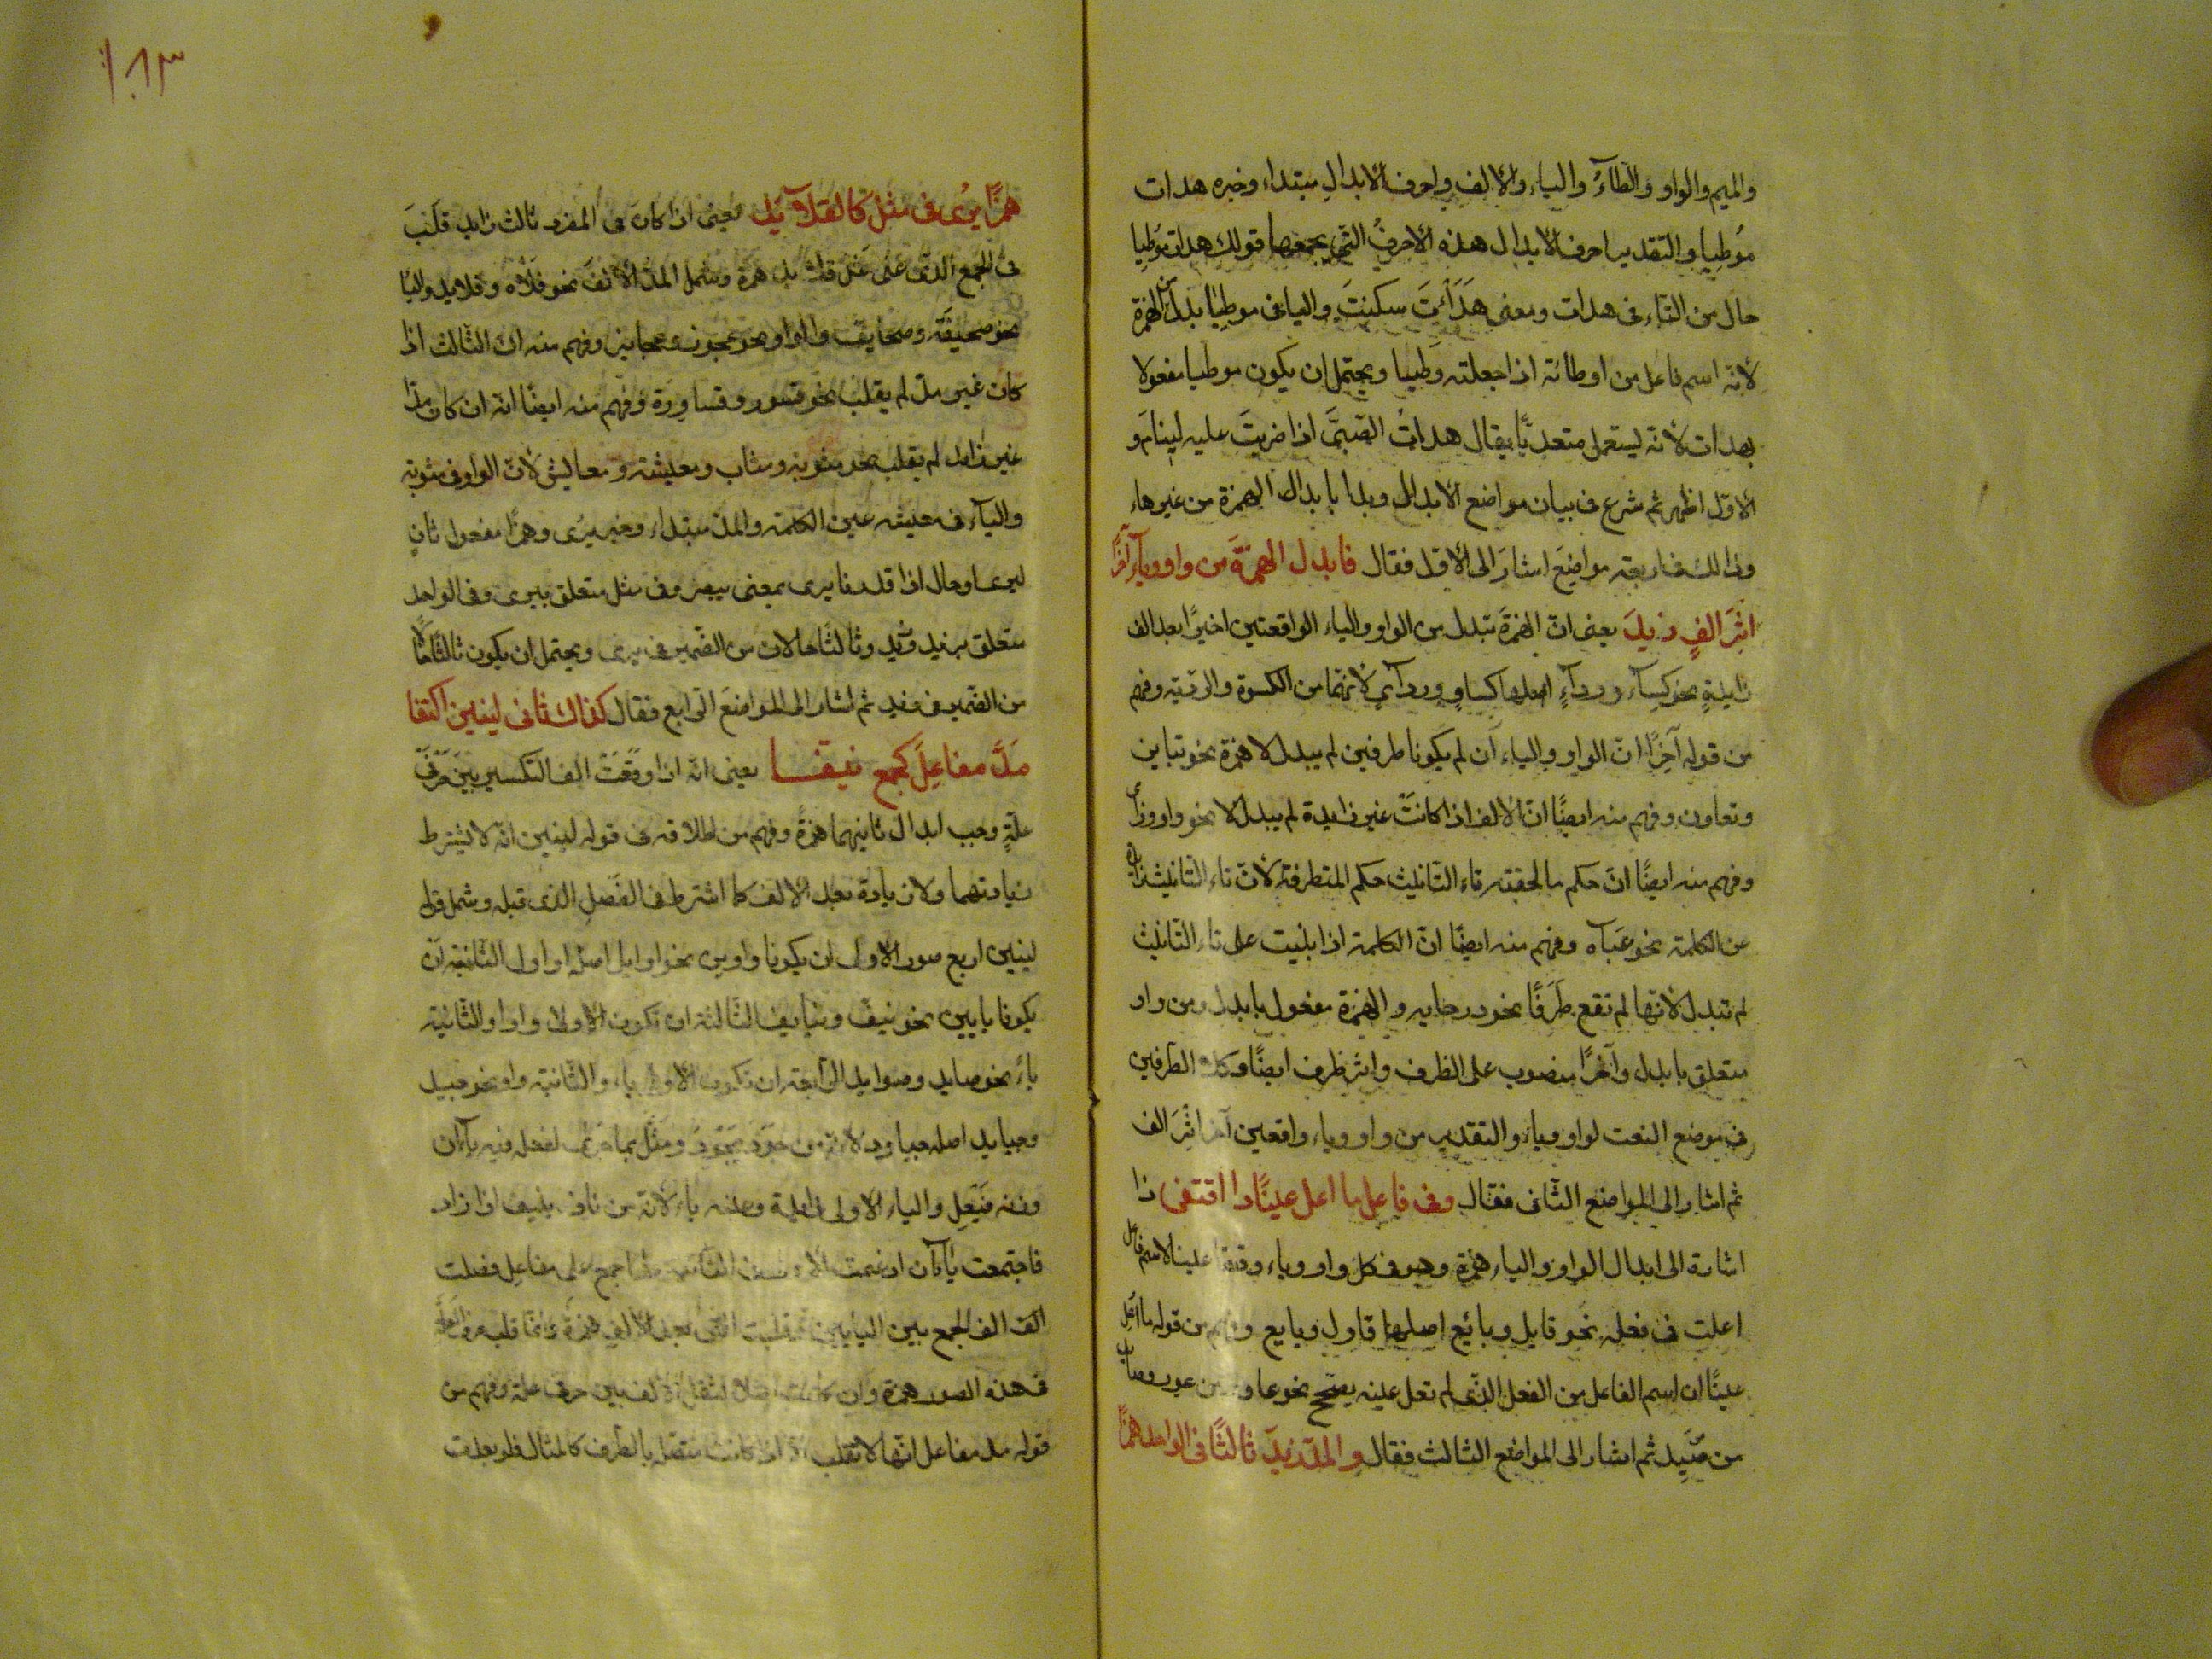 والميم والواو والطآء والياء والالف واحرف الابدال مبتداء وخبره هدات
موطيا والتقدير احرف الابدال هذه الاحرف التي يجمعها قولك هدات موطيا
حال من التاء فى هدات ومعنى هَدَأتَ سكنتَ والياء فى موطيا بدل من الهمزة
لانّه اسم فاعل من اوطأته اذا جعلته وطيبا ويحتمل ان يكون موطيا مفعولا
بهدات لانّه يستعمل متعديًا يقال هدات الصبىَّ اذا ضربتَ عليه لينام و
الاوّل اظهر ثم شرع فى بيان مواضع الابدال وبدا بابدال الهمزة من غيرها
وذالك فى اربعة مواضعَ اشارَ الى الاوّل فقال فابدل الهمزةَ من واو وياءٍ آخرًا
اثرَ الفٍ زيدَ يعنى انّ الهمزةَ تبدل من الواو والياء الواقعتين اخيرًا بعد الف
زايدةٍ نحو كسآء وردآءٍ اصلها كساوٍ ورداي لانّهما من الكسوة والردية وفهم
من قوله آخرًا انّ الواو والياء ان لم يكونا طرفين لم يبدلا همزة نحو تباين
وتعاون وفهم منه ايضًا انّ الالف اذا كانتْ غير زايدة لم يبدلا نحو واو وزاى
وفهم منه ايضًا انّ حكم ما لحقته تاء التانيث حكم المتطرفة لانّ تاء التانيث زايدة
عن الكلمة نحو عبآه وفهم منه ايضًا انّ الكلمة اذا بنيت على تاء التانيث
لم تبدل لانّها لم تقع طَرَفًا نحو درحايه والهمزة مفعول بابدل ومن واو
متعلق بابدل وآخرًا منصوب على الظرف واثر ظرف ايضًا وكلا الظرفين
فى موضع النعت لواو وياء والتقدير من واو وياء واقعين آخرا اثرَ الف
ثم اشار الى المواضع الثّانى فقال وفى فاعل ما اعل عينًا ذا اقتفى ذا
اشارة الى ابدال الواو والياء همزة وهو فى كل واو وياء وقعتا عينا لاسم فاعل
اعلت فى فعله نحو قايل وبائع اصلهما قاول وبايع وفهم من قوله ما اعل
عينًا ان اسم الفاعل من الفعل الّذى لم تعل عينه يصحّ نحو عاور من عور وصايد
من صَيِد ثم اشار الى المواضع الثالث فقال والمدّ زيدَ ثالثًا فى الواحد همزًا
همزًا يرى فى مثل كالقلآئد يعنى اذا كان فى المفرد ثالث زايد قلبَ
فى الجمع الذى على مثل قلائد همزة وشمل المدّ الالفَ نحو قلاده وقلايد واليا
نحو صحيفة وصحايف والواو نحو عجوز وعجايز وفهم منه انّ الثالث اذا
كان غير مدّ لم يقلب نحو قسور وقساورة وفهم منه ايضًا انّه ان كان مدّا
غير زايد لم يقلب نحو مثوبه ومثاوب ومعيشة ومعايش لانّ الواو فى مثوبة
والياء فى معيشه عين الكلمة والمدّ مبتداء وخبره يرى وهمزًا مفعول ثانٍ
ليرى او حال اذا قدرنا يرى بمعنى يبصر وفى مثل متعلق بيرى وفى الواحد
متعلق بزيد وزيد وثالثًا حالان من الضمير فى يرى ويحتمل ان يكون ثالثًا حالًا
من الضمير فى زيد ثم اشار الى المواضع الرّابع فقال كذاك ثانى لينين اكتنفا
مَدَّ مفاعلَ كجمع نيفا يعنى انّه اذا وقعت الف التكسير بين حرفى
علّةٍ وجب ابدال ثانيهما همزة وفهم من اطلاقه فى قوله لينين انّه لا يشترط
زيادتهما ولا زيادة بعد الالف كما اشترط فى الفصل الذى قبله وشمل قوله
لينين اربع صور الاولى ان يكونا واوين نحو اوايل اصله اواول الثانية ان
يكونا يايين نحو نيف ونيايف الثالثة ان تكون الاولى واوا والثانية
ياء نحو صايد وصوايد الرّابعة ان تكون الاولى ياء والثانية واو نحو جيد
وجيايد اصله جياود لانّه من جوّد يجوّد ومثّل بما خفى فعله فيه يآآن
وزنه فَيْعِل والياء الاولى زايدة وعينه ياء لانّه من ناف ينيف اذا زاد
فاجتمعت يآآن ادغمت الاولى فى الثانية فاذا جمع على مفاعل فصلت
الف الجمع بين اليايين فقلبت التى بعد الالف همزة وانّما قلبت حرف العلّة
فى هذه الصور همزة وان كانت اصلا لثقل الالف بين حرفى علة وفهم من
قوله مد مفاعل انّها لا تقلب الّا اذا كانت متصلة بالطرف كالمثال فلو بعدت
١٠٨٣